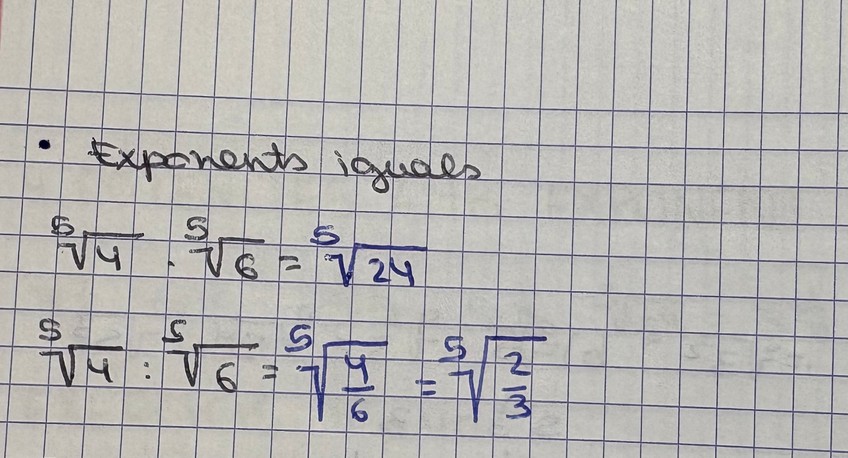 • Exponents iguals
⁵√4 · ⁵√6 = ⁵√24
⁵√4 : ⁵√6 = ⁵√(4/6) = ⁵√(2/3)